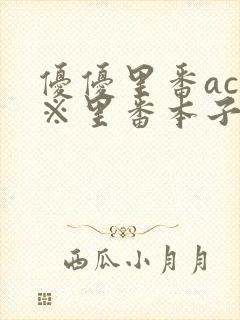 優優里番ac
※里番本子
西瓜小月月